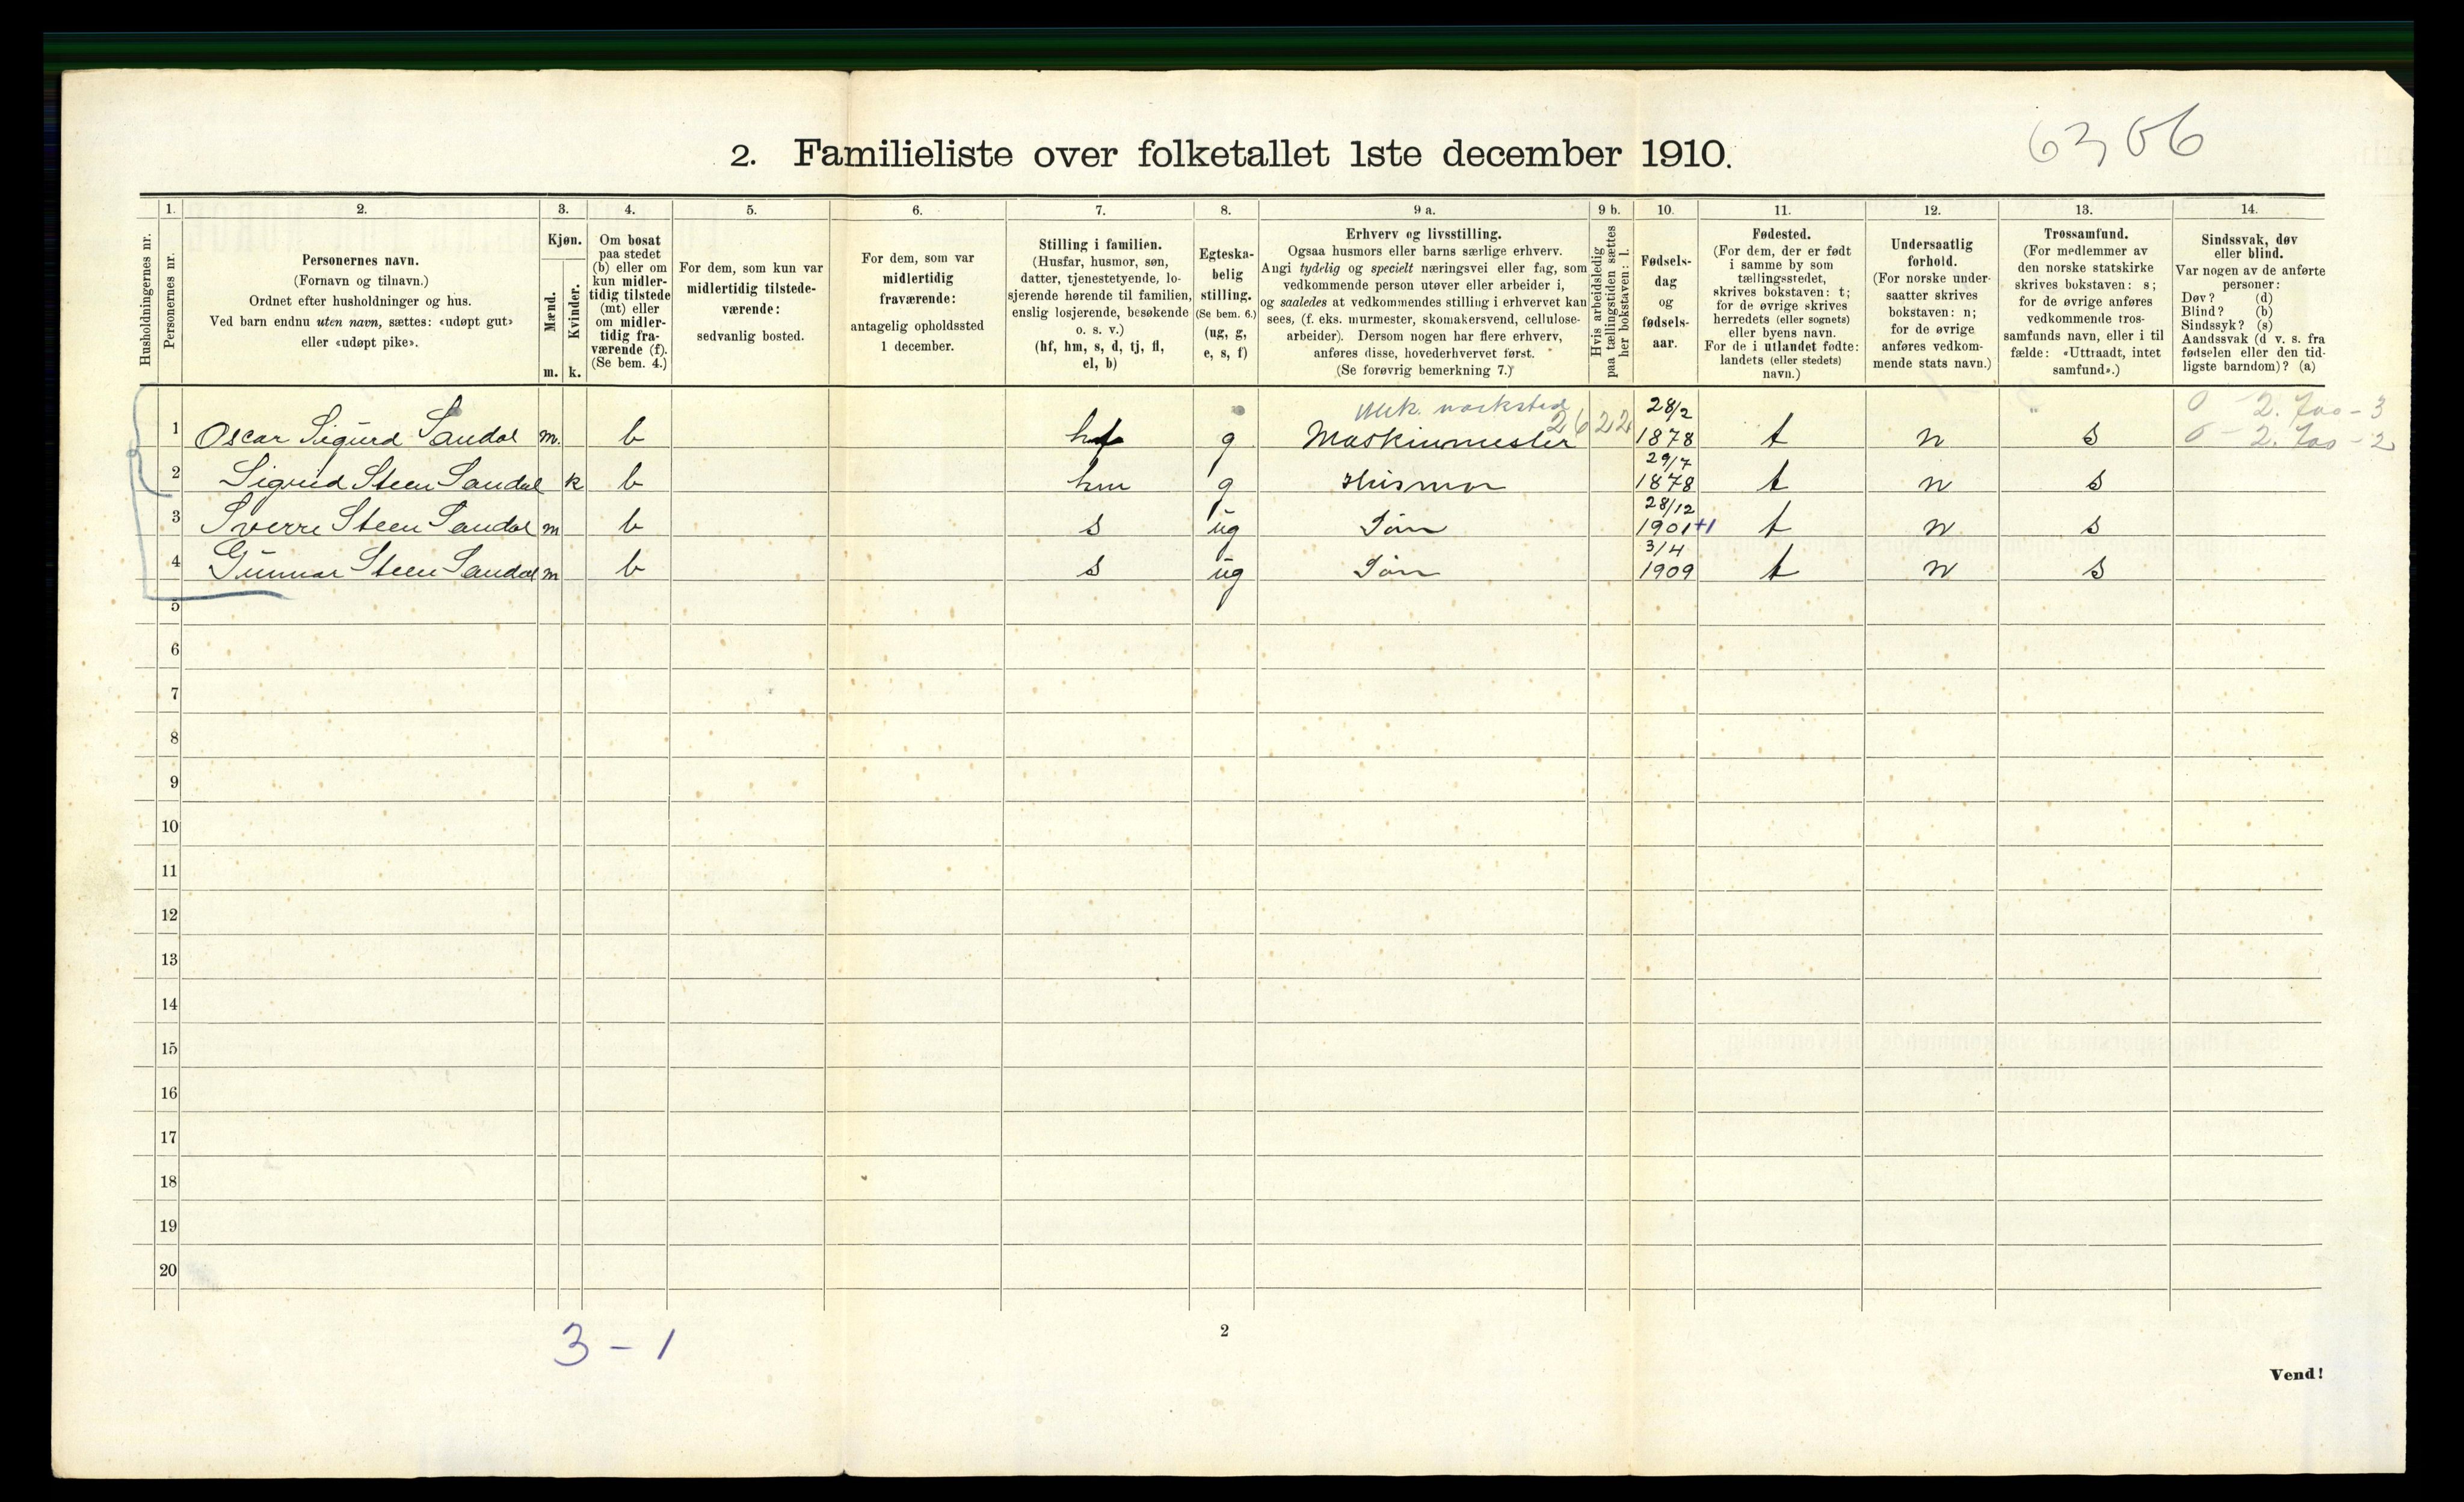 6306
2. Familieliste over folketallet 1ste december 1910.
Husholdningernes nr.
1. Personernes nr.
2. Personernes navn.
(Fornavn og tilnavn.)
Ordnet efter husholdninger og hus.
Ved barn endnu uten navn, sættes: «udøpt gut»
eller «udøpt pike».
3. Kjøn.
Mænd. m.
Kvinder. k.
4. Om bosat
paa stedet
(b) eller om
kun midler-
tidig tilstede
(mt) eller
om midler-
tidig fra-
værende (f).
(Se bem. 4.)
5. For dem, som kun var
midlertidig tilstede-
værende:
sedvanlig bosted.
6. For dem, som var
midlertidig
fraværende:
antagelig opholdssted
1 december.
7. Stilling i familien.
(Husfar, husmor, søn,
datter, tjenestetyende, lo-
sjerende hørende til familien,
enslig losjerende, besøkende
o. s. v.)
(hf, hm, s, d, tj, fl,
el, b)
8. Egteska-
belig
stilling.
(Se bem. 6.)
(ug, g,
e, s, f)
9 a. Erhverv og livsstilling.
Ogsaa husmors eller barns særlige erhverv.
Angi tydelig og specielt næringsvei eller fag, som
vedkommende person utøver eller arbeider i,
og saaledes at vedkommendes stilling i erhvervet kan
sees, (f. eks. murmester, skomakersvend, cellulose-
arbeider). Dersom nogen har flere erhverv,
anføres disse, hovederhvervet først.
(Se forøvrig bemerkning 7.)
9 b. Hvis arbeidsledig
paa tællingstiden sættes
her bokstaven: l.
10. Fødsels-
dag
og
fødsels-
aar.
11. Fødested.
(For dem, der er født
i samme by som
tællingsstedet,
skrives bokstaven: t;
for de øvrige skrives
herredets (eller sognets)
eller byens navn.
For de i utlandet fødte:
landets (eller stedets)
navn.)
12. Undersaatlig
forhold.
(For norske under-
saatter skrives
bokstaven: n;
for de øvrige
anføres vedkom-
mende stats navn.)
13. Trossamfund.
(For medlemmer av
den norske statskirke
skrives bokstaven: s;
for de øvrige anføres
vedkommende tros-
samfunds navn, eller i til
fælde: «Uttraadt, intet
samfund».)
14. Sindssvak, døv
eller blind.
Var nogen av de anførte
personer:
Døv? (d)
Blind? (b)
Sindssyk? (s)
Aandssvak (d v. s. fra
fødselen eller den tid-
ligste barndom)? (a)
Mek. værksted 28/2 0 - 2. - 3
1 Oscar Sigurd Sandal m. b hf g Maskinmester 2622 1878 t n s 0 - 2. - 2
29/7
2 Sigrid Steen Sandal k b hm g Husmor 1878 t n s
28/12
3 Sverre Steen Sandal m b s ug Søn 1901 +1 t n s
3/4
4 Gunnar Steen Sandal m b s ug Søn 1909 t n s
5
6
7
8
9
10
11
12
13
14
15
16
17
18
19
20
3 - 1
2
Vend!